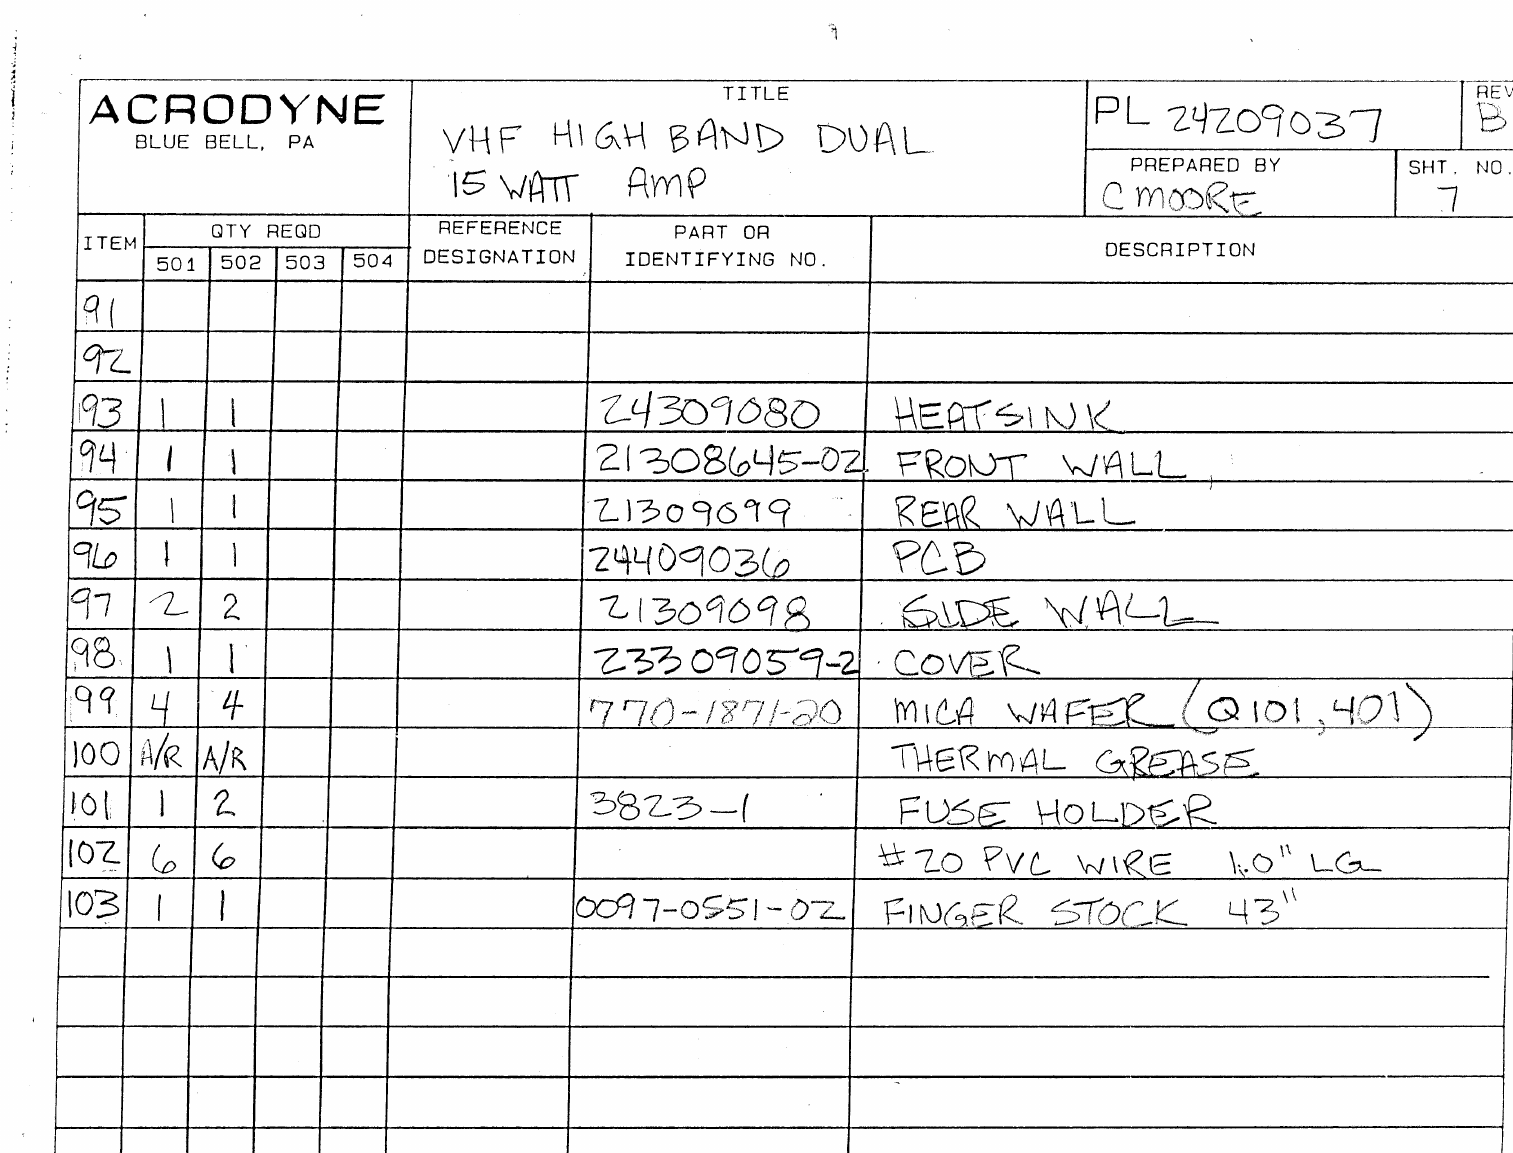 ACRODYNE
BLUE BELL, PA
TITLE
VHF HIGH BAND DUAL
15 WATT AMP
PL 24209037
REV
B
PREPARED BY
C MOORE
SHT. NO.
7
ITEM
QTY REQD
501 502 503 504
REFERENCE
DESIGNATION
PART OR
IDENTIFYING NO.
DESCRIPTION
91
92
93 1 1 24309080 HEATSINK
94 1 1 21308645-02 FRONT WALL
95 1 1 21309099 REAR WALL
96 1 1 24409036 PCB
97 2 2 21309098 SIDE WALL
98 1 1 23309059-2 COVER
99 4 4 770-1871-20 MICA WAFER (Q101,401)
100 A/R A/R THERMAL GREASE
101 1 2 3823-1 FUSE HOLDER
102 6 6 #20 PVC WIRE 1.0" LG
103 1 1 0097-0551-02 FINGER STOCK 43"